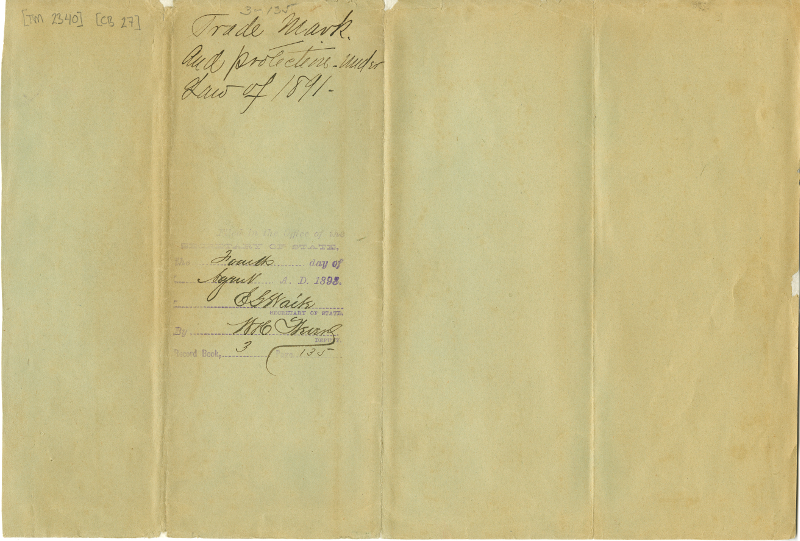 [TM 2340] [CB 27]
3-135
Trade Mark.
And protection under
Law of 1891.
Filed in the office of the
SECRETARY OF STATE,
the Fourth day of
August A. D. 1893.
E G Waite
SECRETARY OF STATE.
By W H
DEPUTY.
Record Book, 3 Page 135